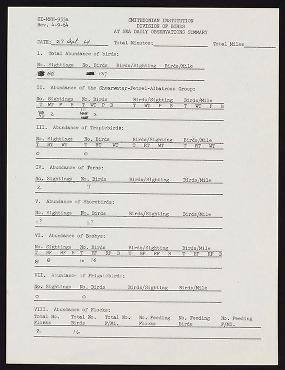 SI-MNH-953a
Rev. 4-9-64
SMITHSONIAN INSTITUTION
DIVISION OF BIRDS
AT SEA DAILY OBSERVATIONS SUMMARY
DATE: 27 Sept. 64 Total Minutes: Total Miles
I. Total Abundance of birds:
No. Sightings No. Birds Birds/Sighting Birds/Mile
II. Abundance of the Shearwater-Petrel-Albatross Group:
No. Sightings No. Birds Birds/Sighting Birds/Mile
2 2
III. Abundance of Tropicbirds:
No. Sightings No. Birds Birds/Sighting Birds/Mile
0 0
IV. Abundance of Terns:
No. Sightings No. Birds Birds/Sighting Birds/Mile
2 7
V. Abundance of Shorebirds:
No. Sightings No. Birds Birds/Sighting Birds/Mile
VI. Abundance of Boobys:
No. Sightings No. Birds Birds/Sighting Birds/Mile
8 8 16 16
VII. Abundance of Frigatebirds:
No. Sightings No. Birds Birds/Sighting Birds/Mile
0 0
VIII. Abundance of Flocks:
Total No. Total No. Total No. No. Feeding No. Feeding No. Feeding
Flocks Birds F/Mi. Flocks Birds F/Mi.
2 16